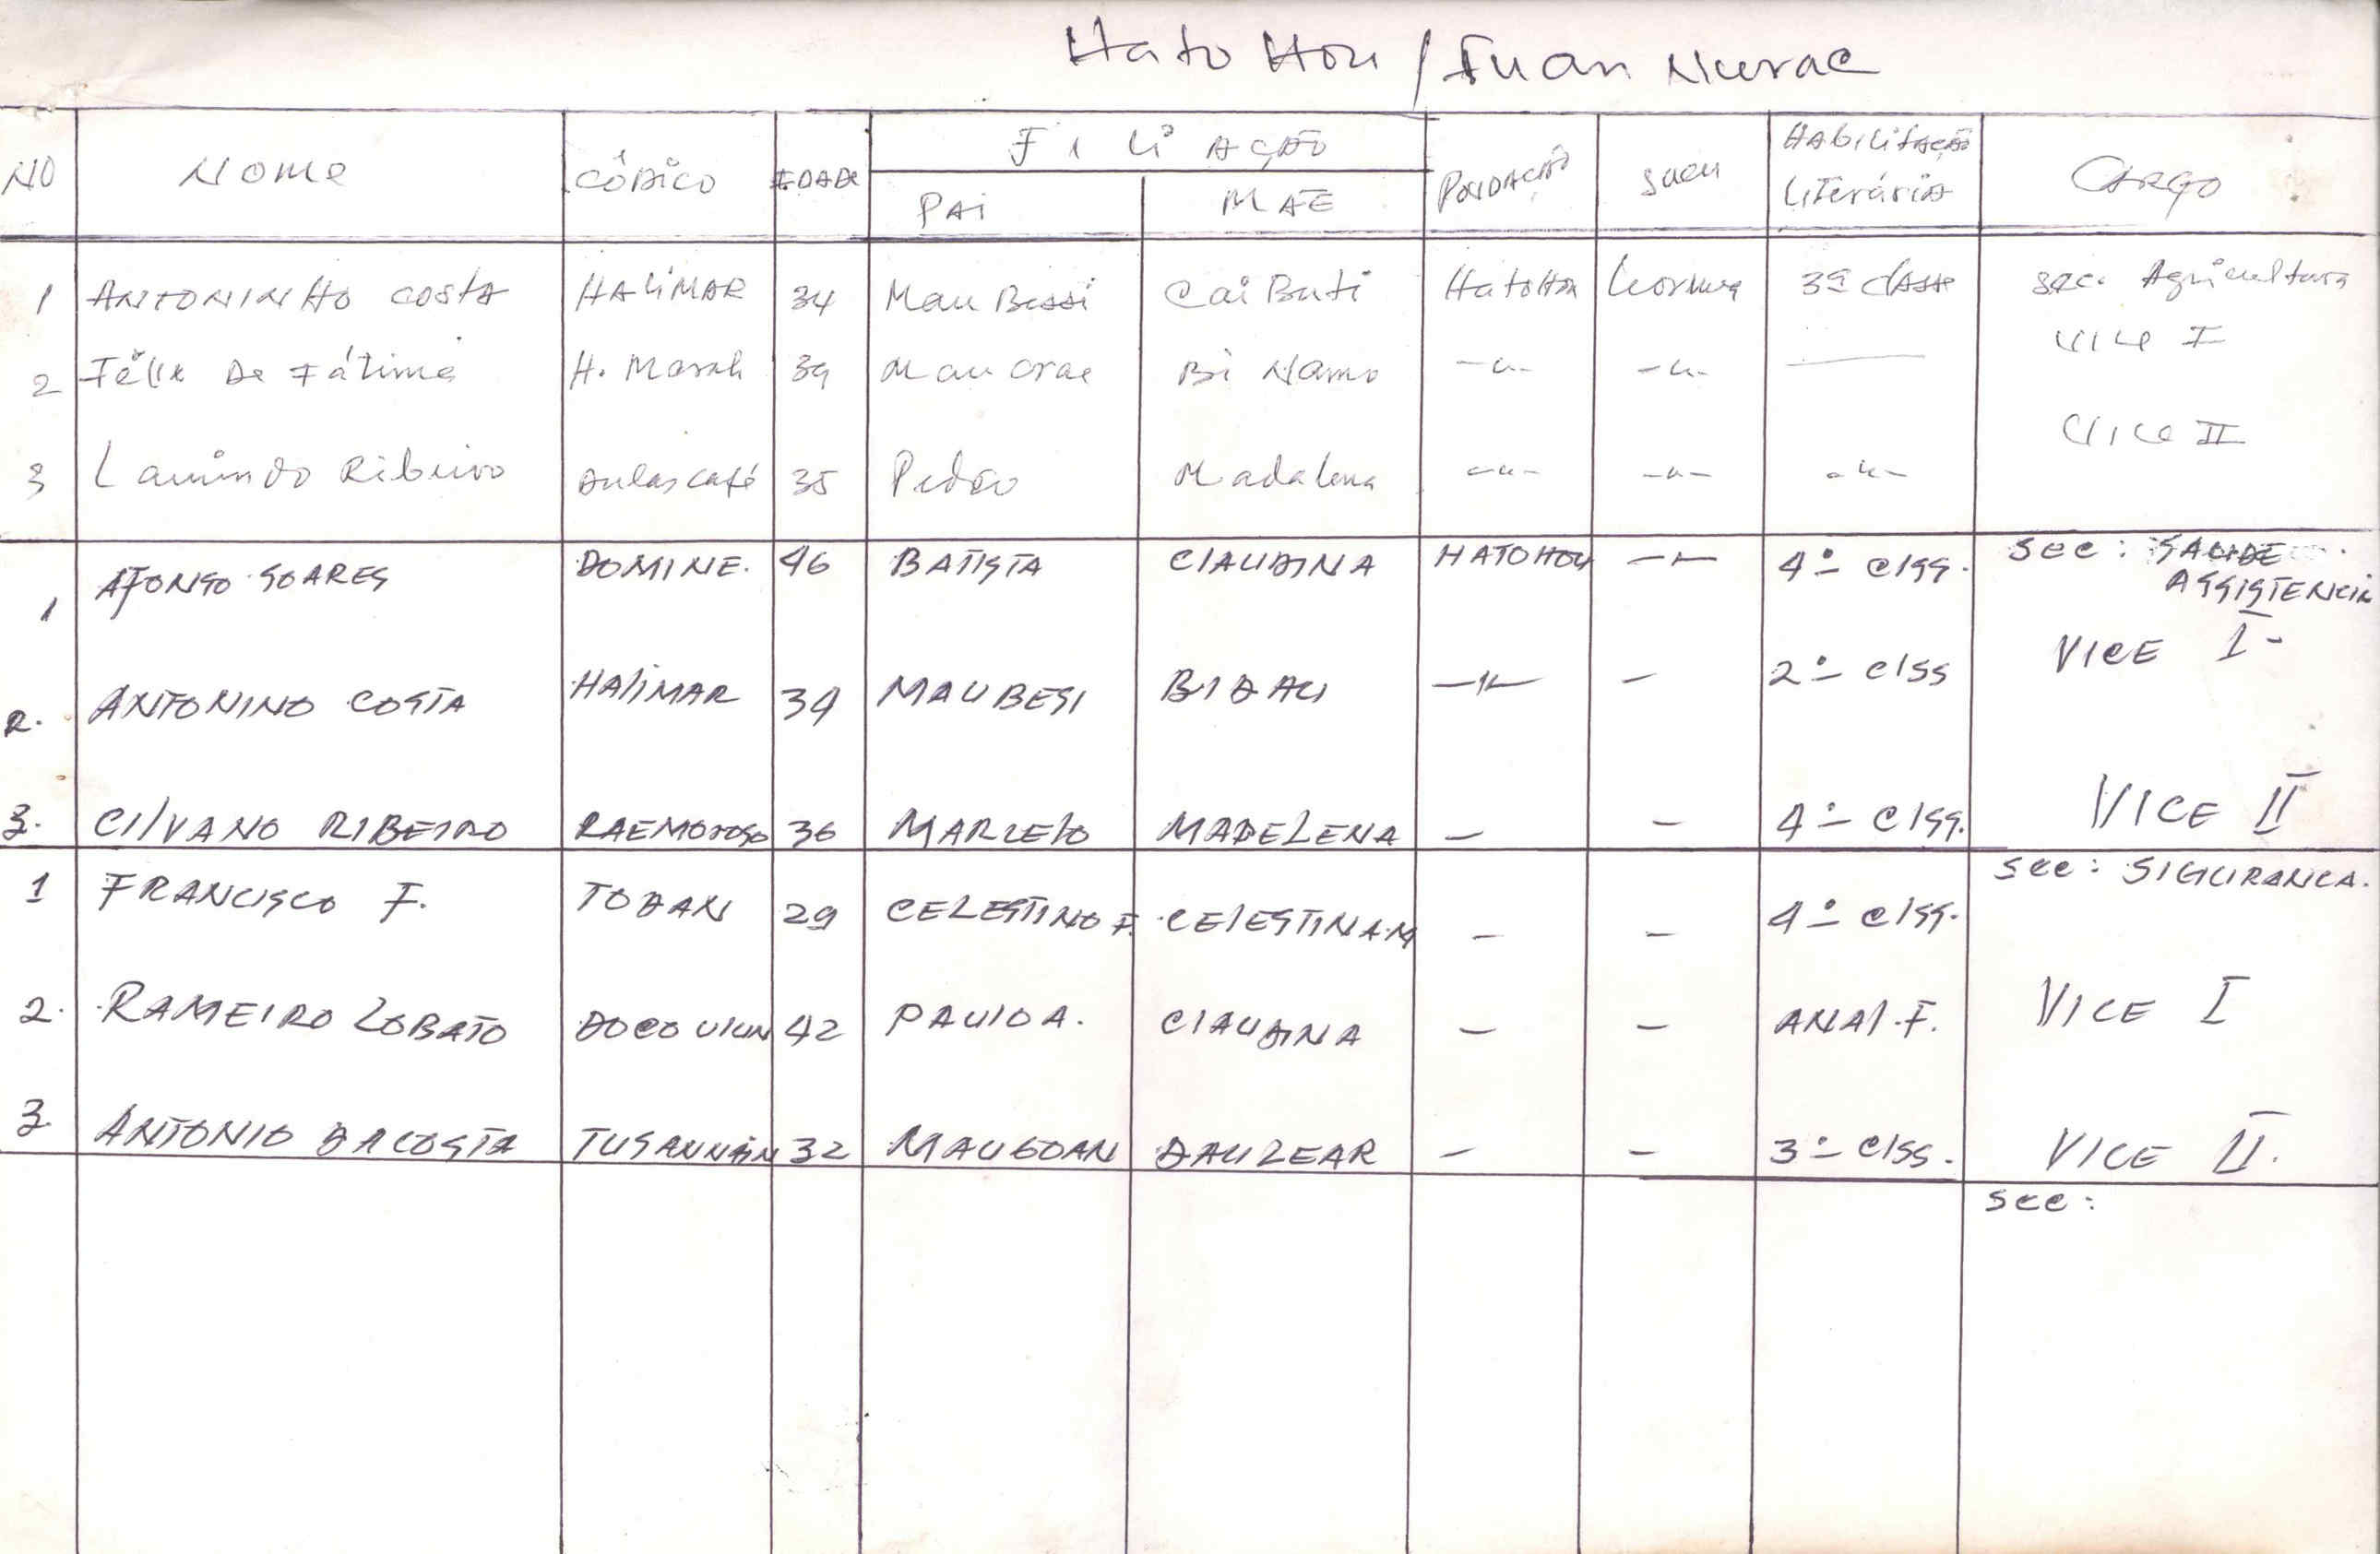 Hato Hou / Fuan Nurac
NO Nome CÔDICO IDADE FILIAÇÃO POVOAÇÃO SUCU HABILITAÇÃO Literária CARGO
PAI MÃE
1 ANTONINHO COSTA HALIMAR 34 Mau Bessi Cai Buti HatoHou 3ª classe sec. Agricultura
2 Félix De Fátima H. Marah 39 Mau Orae Bi Namo -"- -"- — Vice I
3 Laurindo Ribeiro 35 Pedro Madalena -"- -"- -"- Vice II
1 AFONSO SOARES DOMINE. 46 BATISTA CLAUDINA HATOHOU -"- 4º Clss. Sec: SAUDE
ASSISTENCIA
2. ANTONINO COSTA HALIMAR 34 MAUBESI BIDAU -"- - 2º Clss VICE I -
3. CILVANO RIBEIRO 36 MARCELO MADELENA - - 4º Clss. VICE II
1 FRANCISCO F. TODAN 29 CELESTINO F. CELESTINA.M - - 4º Clss. Sec: SIGURANCA.
2. RAMEIRO LOBATO 42 PAULO A. CLAUDINA - - ANAL.F. VICE I
3. ANTONIO DACOSTA 32 MAUGOAN DAUZEAR - - 3º Clss. VICE II.
Sec: